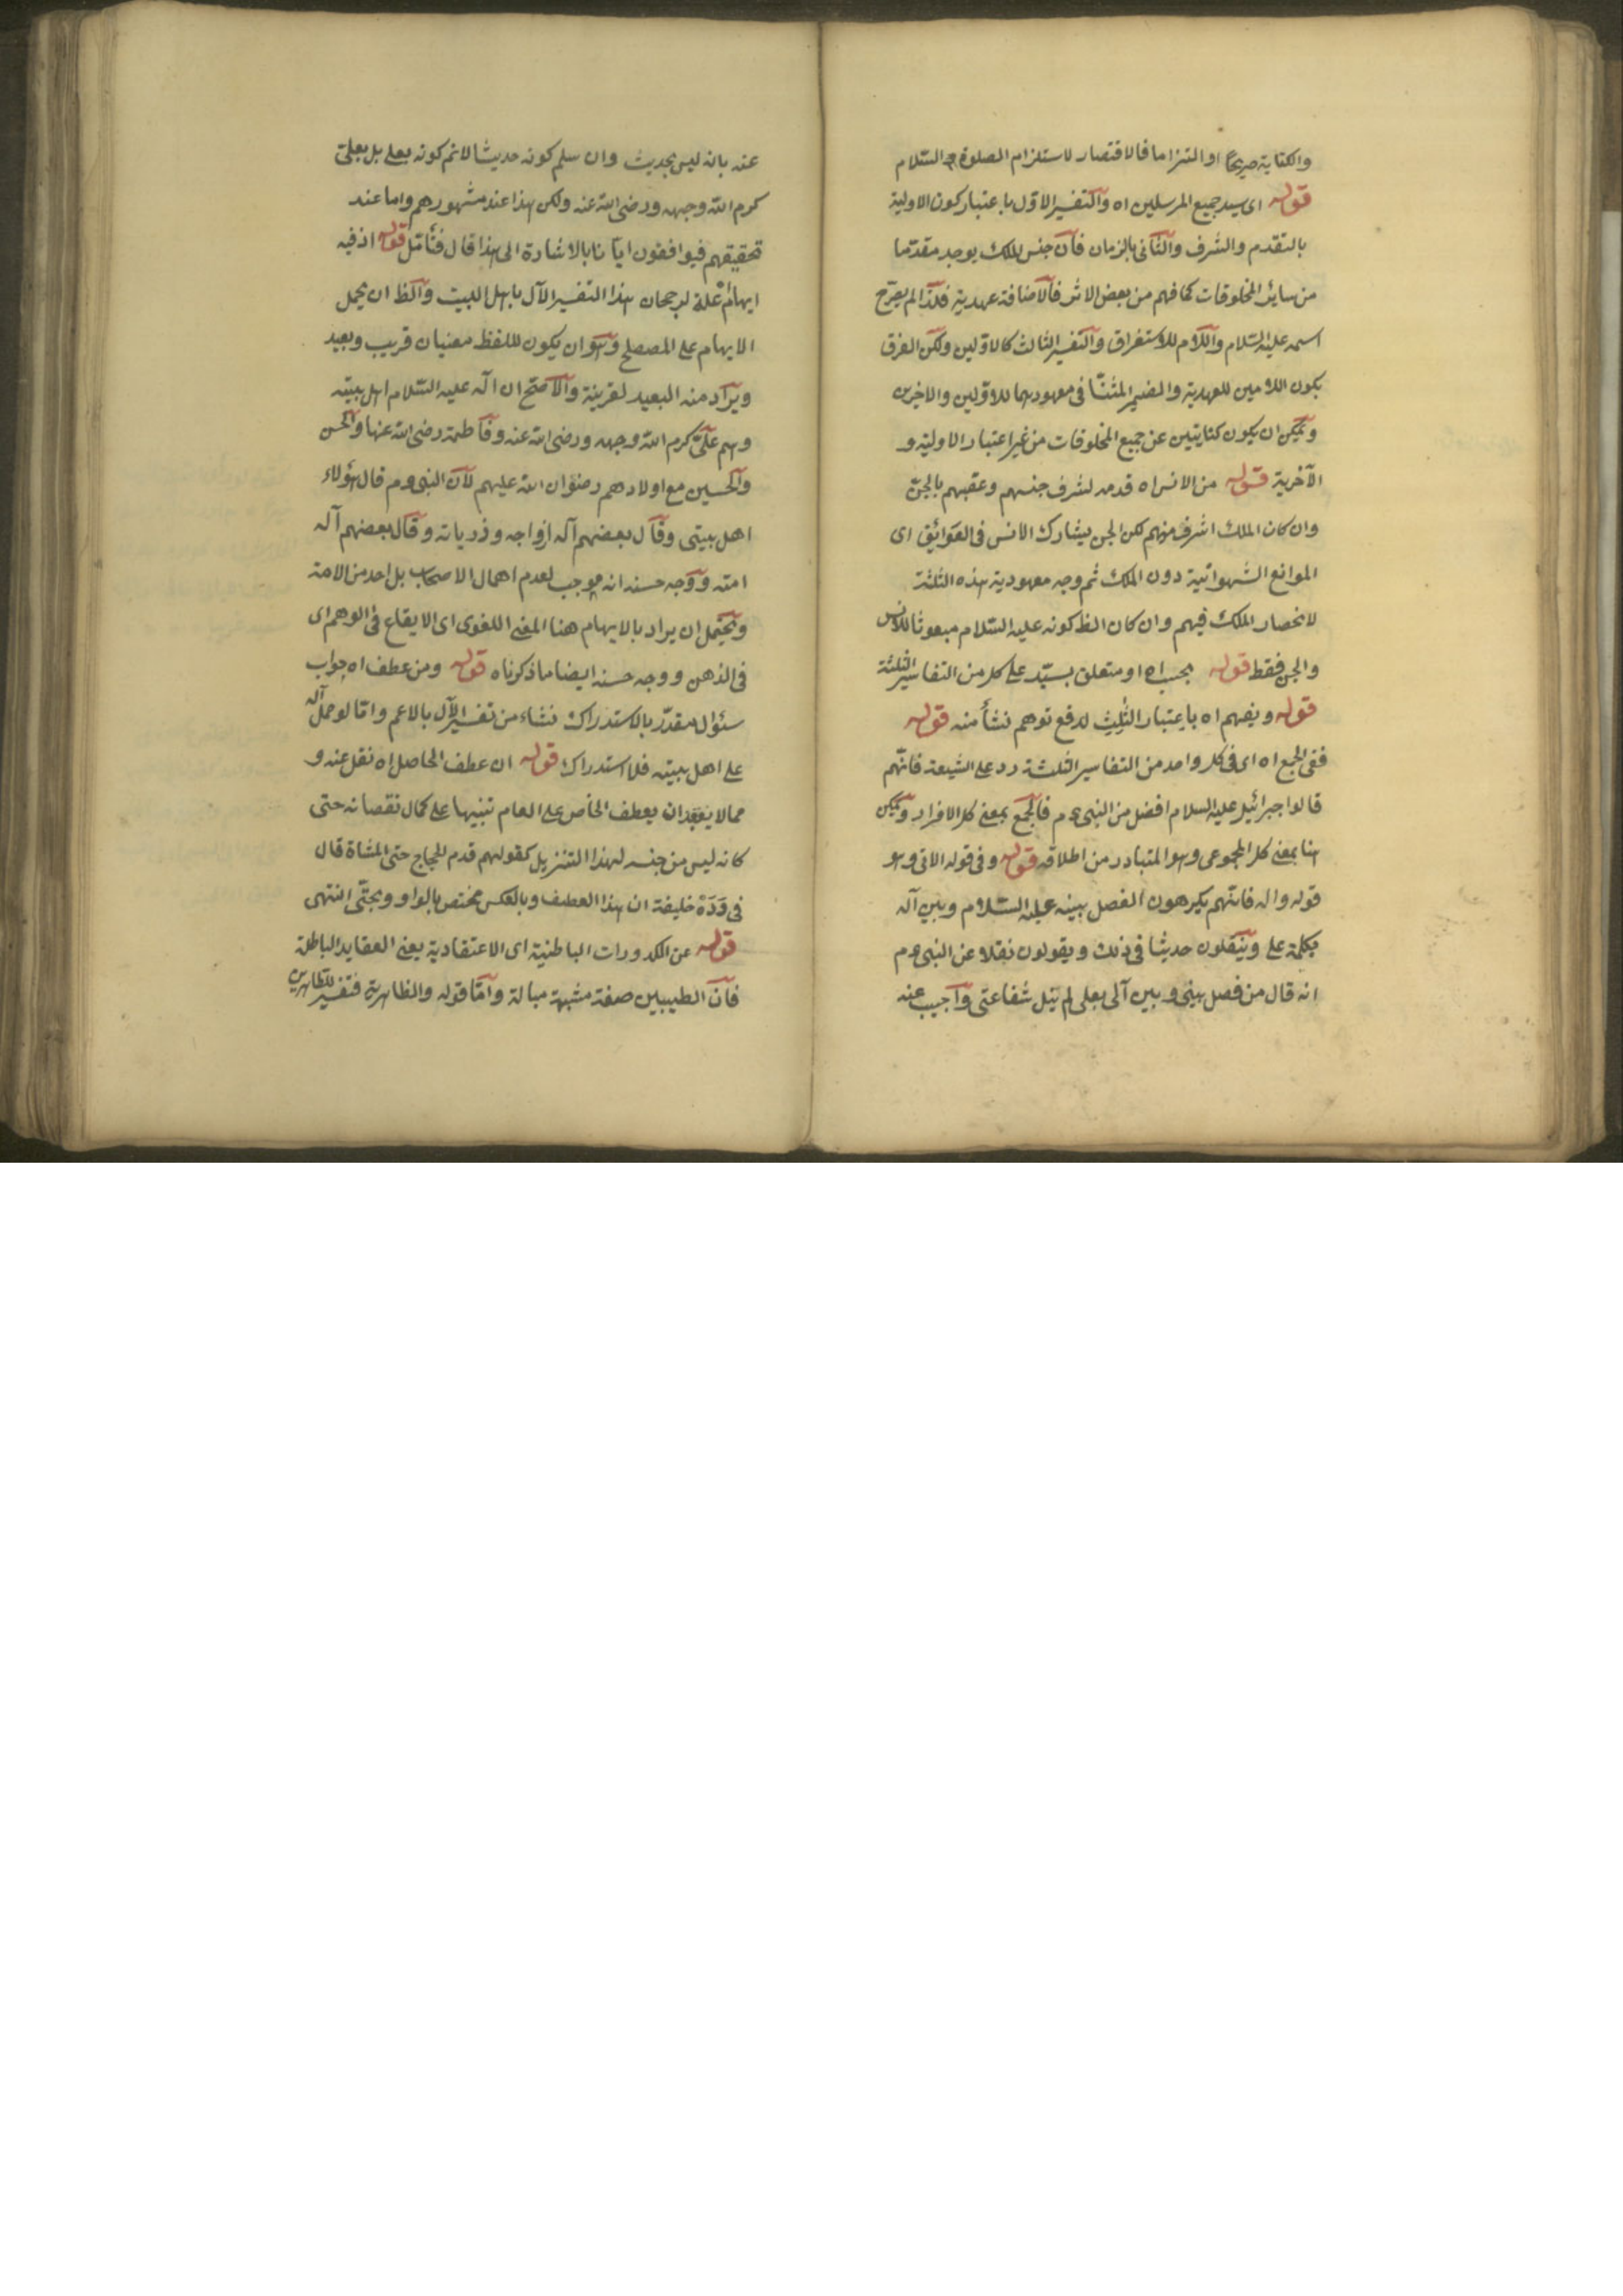 والكناية صريحًا او التزاما فالاقتصار لاستلزام الصلوة والسّلام
قوله اى سيد جميع المرسلين اه والتفسير الاوّل باعتبار كون الاولية
بالتقدم والشرف والثانى بالزمان فان جنس الملك يوجد مقدّما
من سائر المخلوقات كما فهم من بعض الاثر فالاضافة عهدية فلذا لم يصرّح
اسمه عليه السّلام واللام للاستغراق والتفسير الثالث كالاوّلين ولكن الفرق
بكون اللامين للعهدية والضمير المثنّا فى معهوديهما للاوّلين والاخرين
ويمكن ان يكون كنايتين عن جميع المخلوقات من غير اعتبار الاولية و
الآخرية قوله من الانس اه قدمه لشرف جنسهم وعقبهم بالجنّ
وان كان الملك اشرف منهم لكن الجن يشارك الانس فى العوائق اى
الموانع الشهوانية دون الملك ثم وجه معهودية هذه الثلثة
لانحصار الملك فيهم وان كان الظ كونه عليه السّلام مبعوثا للانس
والجن فقط قوله بحسب اه او متعلق بسيّد على كل من التفاسير الثلثة
قوله ويفهم اه باعتبار الثلث لدفع توهم نشأ منه قوله
ففى الجمع اه اى فى كل واحد من التفاسير الثلثة رد على الشيعة فانّهم
قالوا جبرائيل عليه السلام افضل من النبى عم فالجمع بمعنى كل الافراد ويمكن
هنا بمعنى كل المجموعى وهو المتبادر من اطلاقه قوله وفى قوله الاتى وهو
قوله واله فانّهم يكرهون الفصل بينه عليه السّلام وبين آله
بكلمة على وينقلون حديثا فى ذلك ويقولون نقلا عن النبى عم
انه قال من فصل بينى وبين آلى بعلى لم ينل شفاعتى واجيب عنه
عنه بانه ليس بحديث وان سلم كونه حديثا لانم كونه بعلى بل بعلىّ
كرم الله وجهه ورضى الله عنه ولكن هذا عند مشهورهم واما عند
تحقيقهم فيوافقون ايّانا بالاشارة الى هذا قال فتأمل قوله اذ فيه
ايهام علة لرجحان هذا التفسير الآل باهل البيت والظ ان يحمل
الايهام على المصطلح وهو ان يكون للفظ معنيان قريب وبعيد
ويراد منه البعيد لقرينة والاصح ان اله عليه السّلام اهل بيته
وهم علىّ كرم الله وجهه ورضى الله عنه وفاطمة رضى الله عنها والحسن
والحسين مع اولادهم رضوان الله عليهم لان النبى عم قال هؤلاء
اهل بيتى وقال بعضهم آله ازواجه وذرياته وقال بعضهم آله
امته ووجه حسنه انه موجب لعدم اهمال الاصحاب بل احد من الامة
ويحتمل ان يراد بالايهام هنا المعنى اللغوى اى الايقاع فى الوهم اى
فى الذهن ووجه حسنه ايضا ما ذكرناه قوله ومن عطف اه جواب
سئوال مقدّر بالاستدراك نشاء من تفسير الآل بالاعم وامّا لو حمل آله
على اهل بيته فلا استدراك قوله ان عطف الحاصل اه نقل عنه و
مما لا ينبغى ان يعطف الخاص على العام تنبيها على كمال نقصانه حتى
كانه ليس من جنسه لهذا التنزيل كقولهم قدم الحجاج حتى المشاة قال
فى دَدَهْ خليفة ان هذا العطف وبالعكس مختص بالواو وبحتّى انتهى
قوله عن الكدورات الباطنية اى الاعتقادية يعنى العقايد الباطلة
فان الطيبين صفة مشبهة مبالة وامّا قوله والظاهرة فتفسير للظاهرين